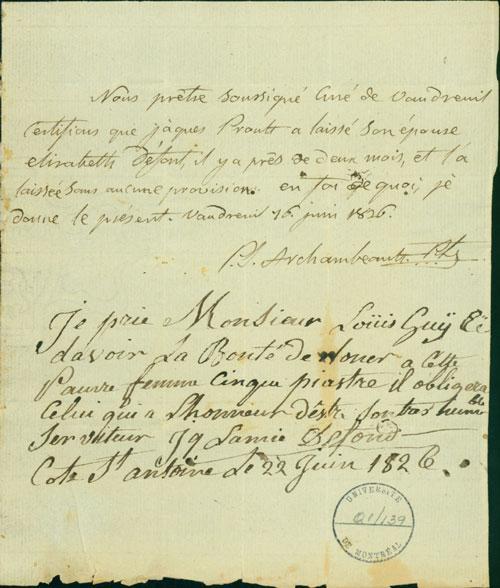 Nous prêtre soussigné Curé de Vaudreuil
Certifions que jaques Proult a laissé son épouse
elizabeth Défont, il y a près de deux mois, et l'a
laissée sans aucune provision. en foi de quoi, je
donne le présent. Vaudreuil 16 juin 1826.
P. L. Archambeault Ptr
Je prie Monsieur Loüis Guÿ
davoir La Bonté de doner a Cette
Pauvre femme Cinque piastre il obligera
Celui qui a Lhonneur dêstre Son tras humble
Serviteur Defond
Cote St antoine Le 22 Juin 1826.
UNIVERSITÉ
Q1/139
DE MONTRÉAL